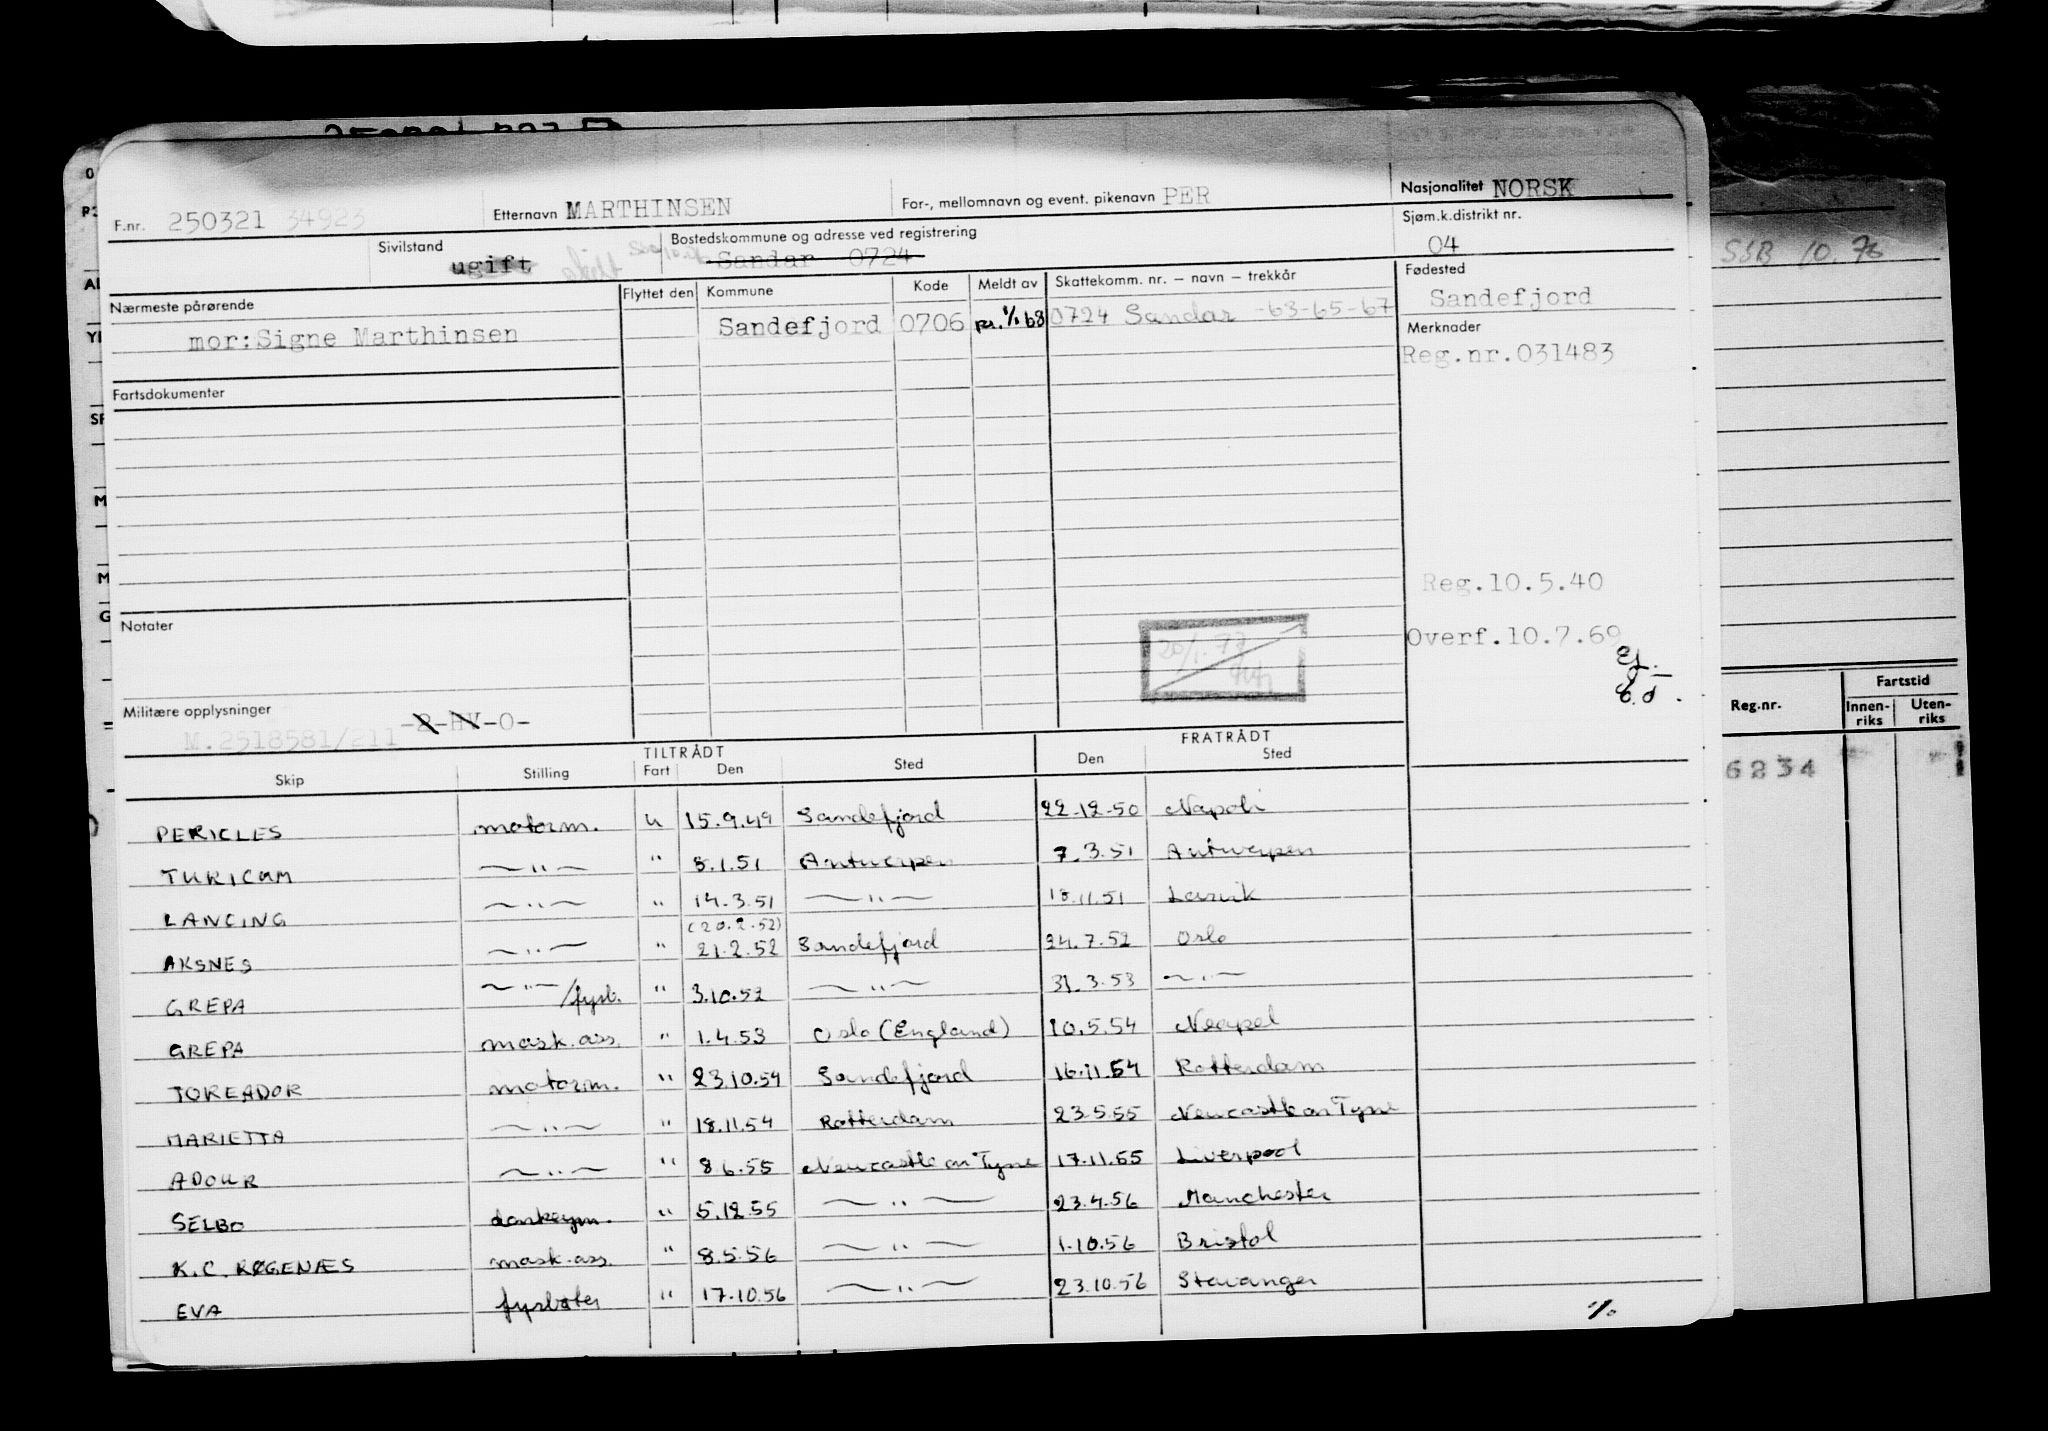 F.nr. 250321 34923 Etternavn MARTHINSEN For-, mellomnavn og event. pikenavn PER Nasjonalitet NORSK
Sivilstand ugift Bostedskommune og adresse ved registrering Sandar 0724 Sjøm.k.distrikt nr. 04
Nærmeste pårørende Flyttet den Kommune Kode Meldt av Skattekomm. nr. – navn – trekkår Fødested
mor:Signe Marthinsen Sandefjord 0706 1/1 68 0724 Sandar -63-65-67 Sandefjord
Merknader
Reg.nr.031483
Fartsdokumenter
Reg.10.5.40
Notater
Overf.10.7.69
20/1.77
Militære opplysninger
M.2518581/211 -2-HV-O-
TILTRÅDT FRATRÅDT
Skip Stilling Fart Den Sted Den Sted
PERICLES motorm. u 15.9.49 Sandefjord 22.12.50 Napoli
TURICUM —"— " 5.1.51 Antwerpen 7.3.51 Antwerpen
LANCING —"— " 14.3.51 —"— 18.11.51 Larvik
(20.2.52)
AKSNES —"— " 21.2.52 Sandefjord 24.7.52 Oslo
GREPA —"—/fyrb. " 3.10.52 —"— 31.3.53 —"—
GREPA mask.ass. " 1.4.53 Oslo (England) 10.5.54 Neapel
TOREADOR motorm. " 23.10.54 Sandefjord 16.11.54 Rotterdam
MARIETTA —"— " 18.11.54 Rotterdam 23.5.55 Newcastle on Tyne
ADOUR —"— " 8.6.55 Newcastle on Tyne 17.11.55 Liverpool
SELBO donkeym. " 5.12.55 —"— 23.4.56 Manchester
K.C. RØGENÆS mask.ass. " 8.5.56 —"— 1.10.56 Bristol
EVA fyrbøter " 17.10.56 —"— 23.10.56 Stavanger
SSB 10.76
Reg.nr. Fartstid
Innen-riks Uten-riks
6234